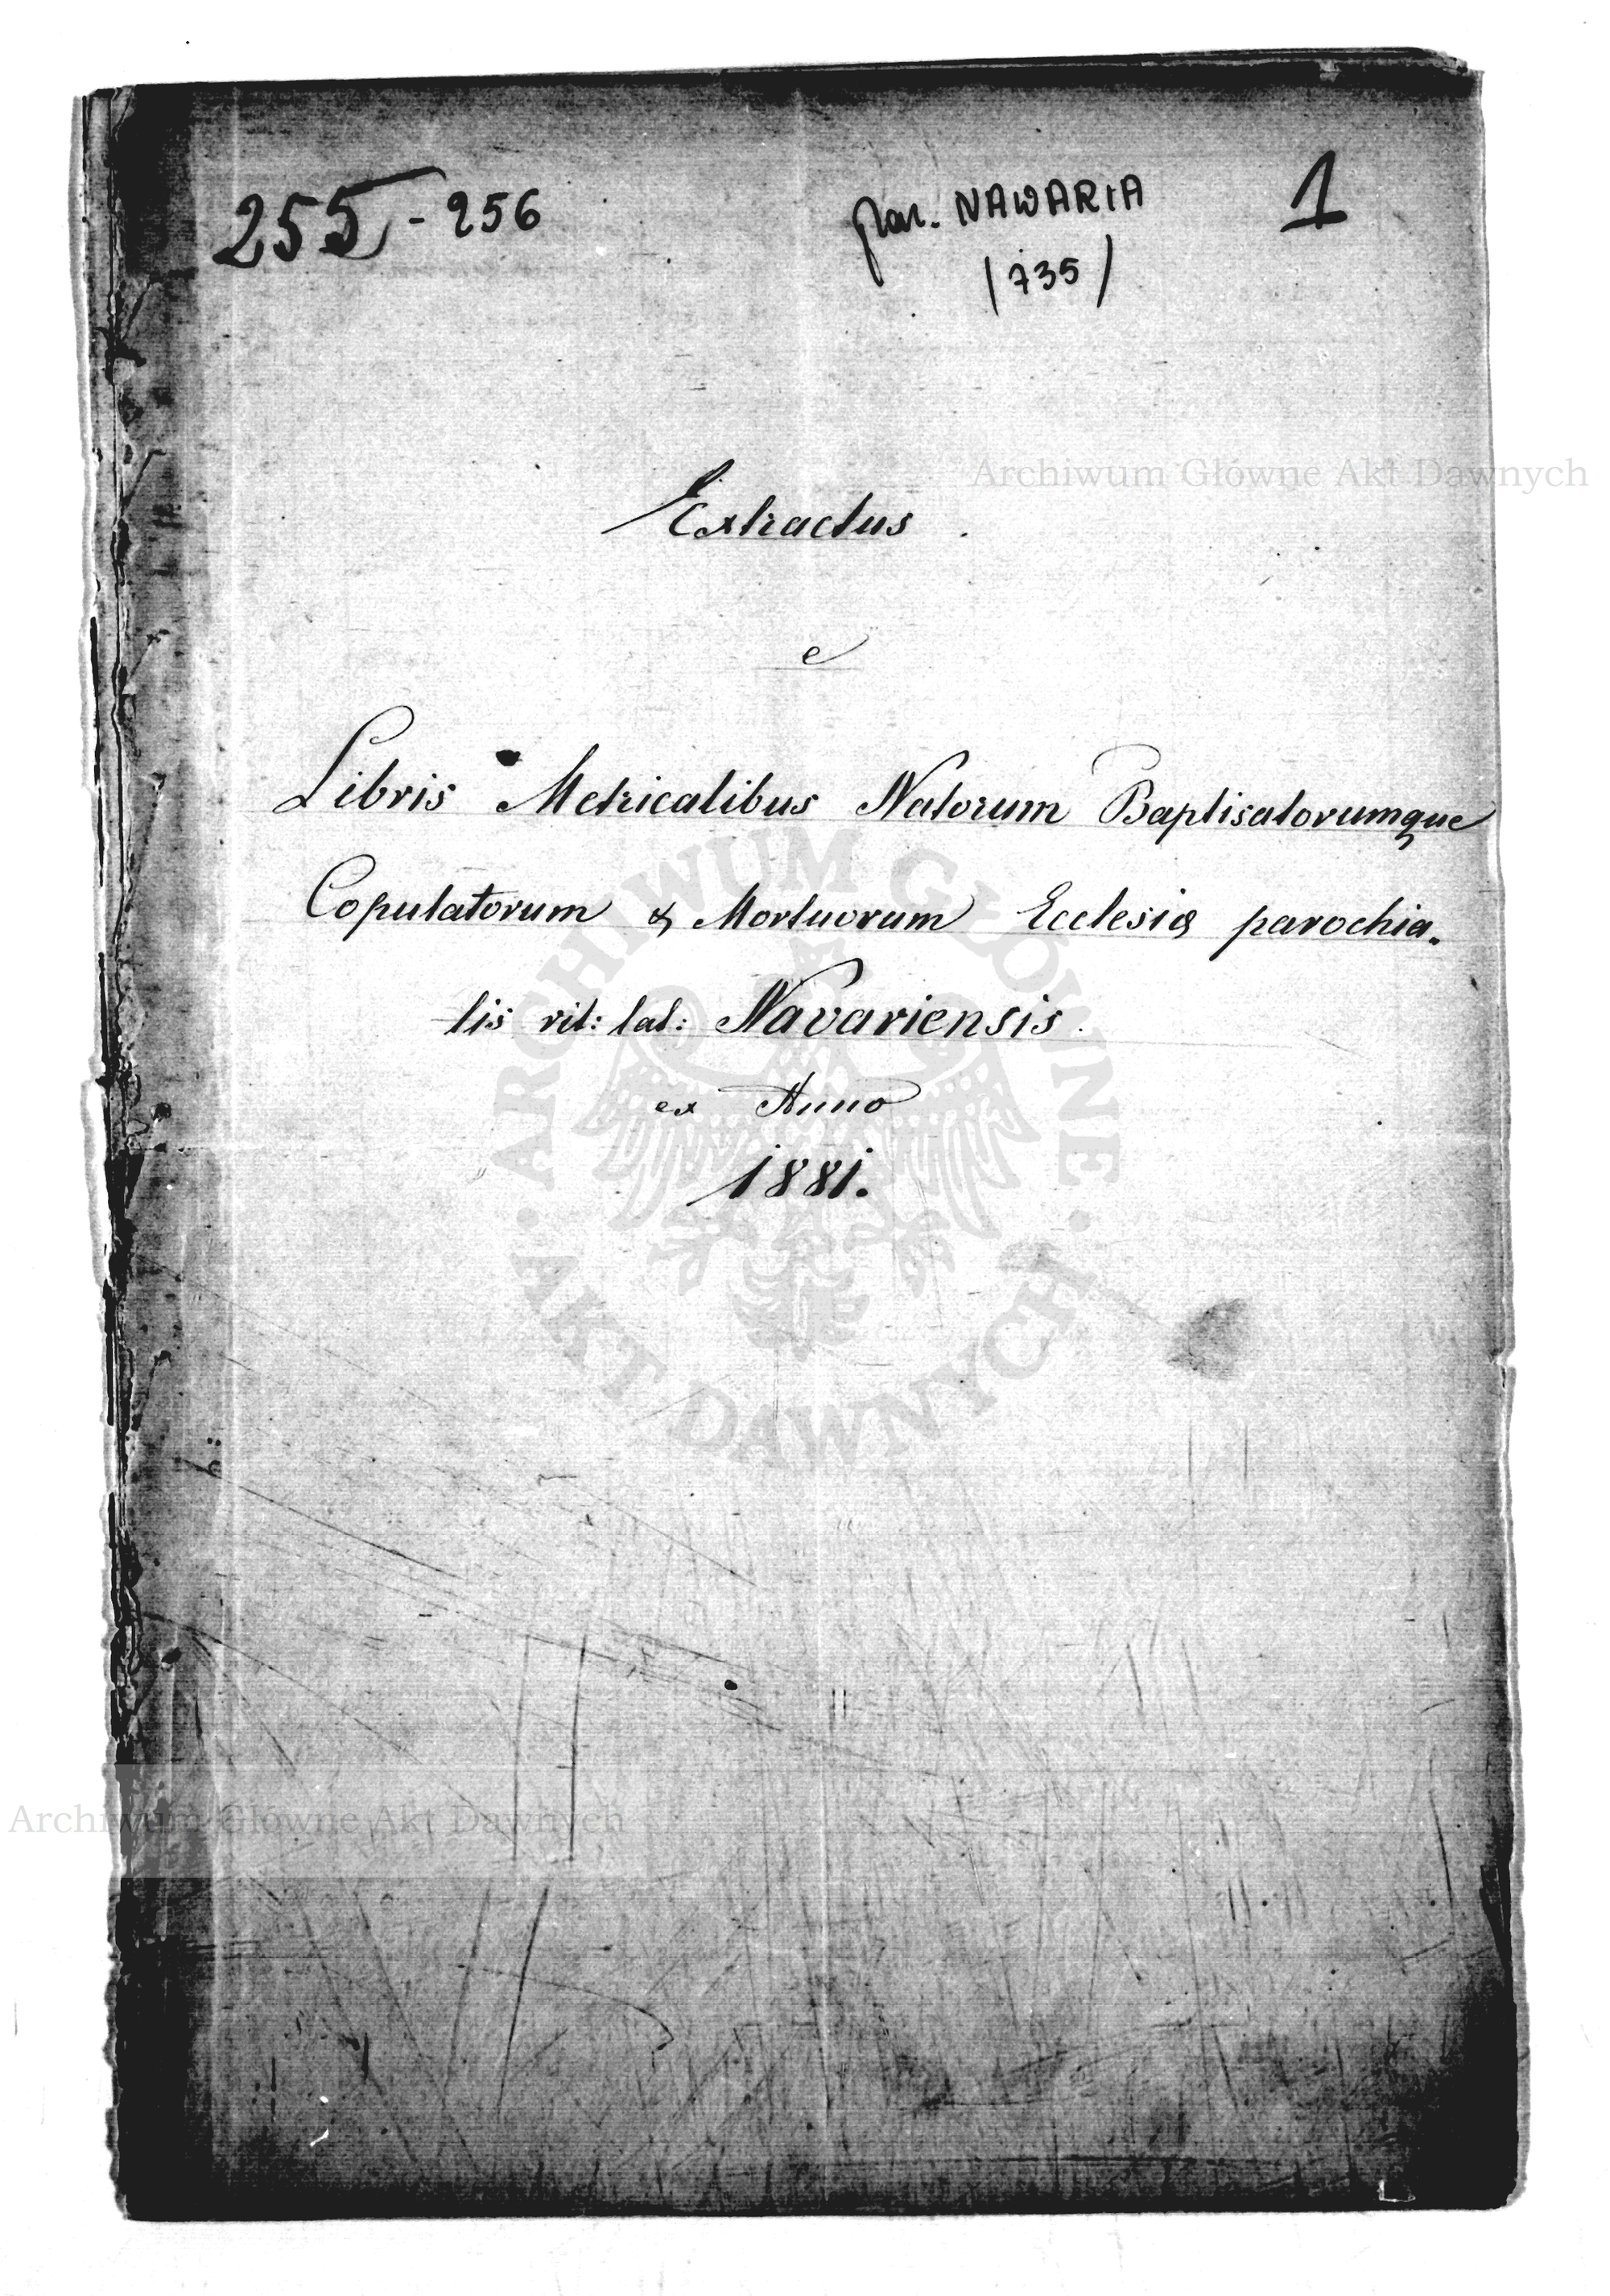 255-256 par. NAWARIA 1
(735)
Archiwum Główne Akt Dawnych
Extractus
e
Libris Metricalibus Natorum Baptisatorumque
Copulatorum & Mortuorum Ecclesiæ parochia-
lis rit: lat: Navariensis.
ex Anno
1881.
ARCHIWUM GŁÓWNE
· AKT DAWNYCH ·
Archiwum Główne Akt Dawnych